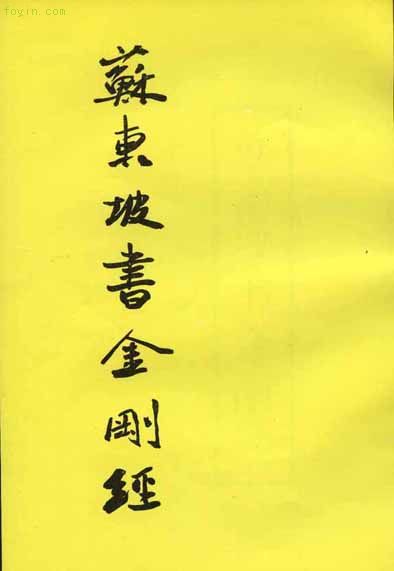 foyin.com
蘇東坡書金剛經